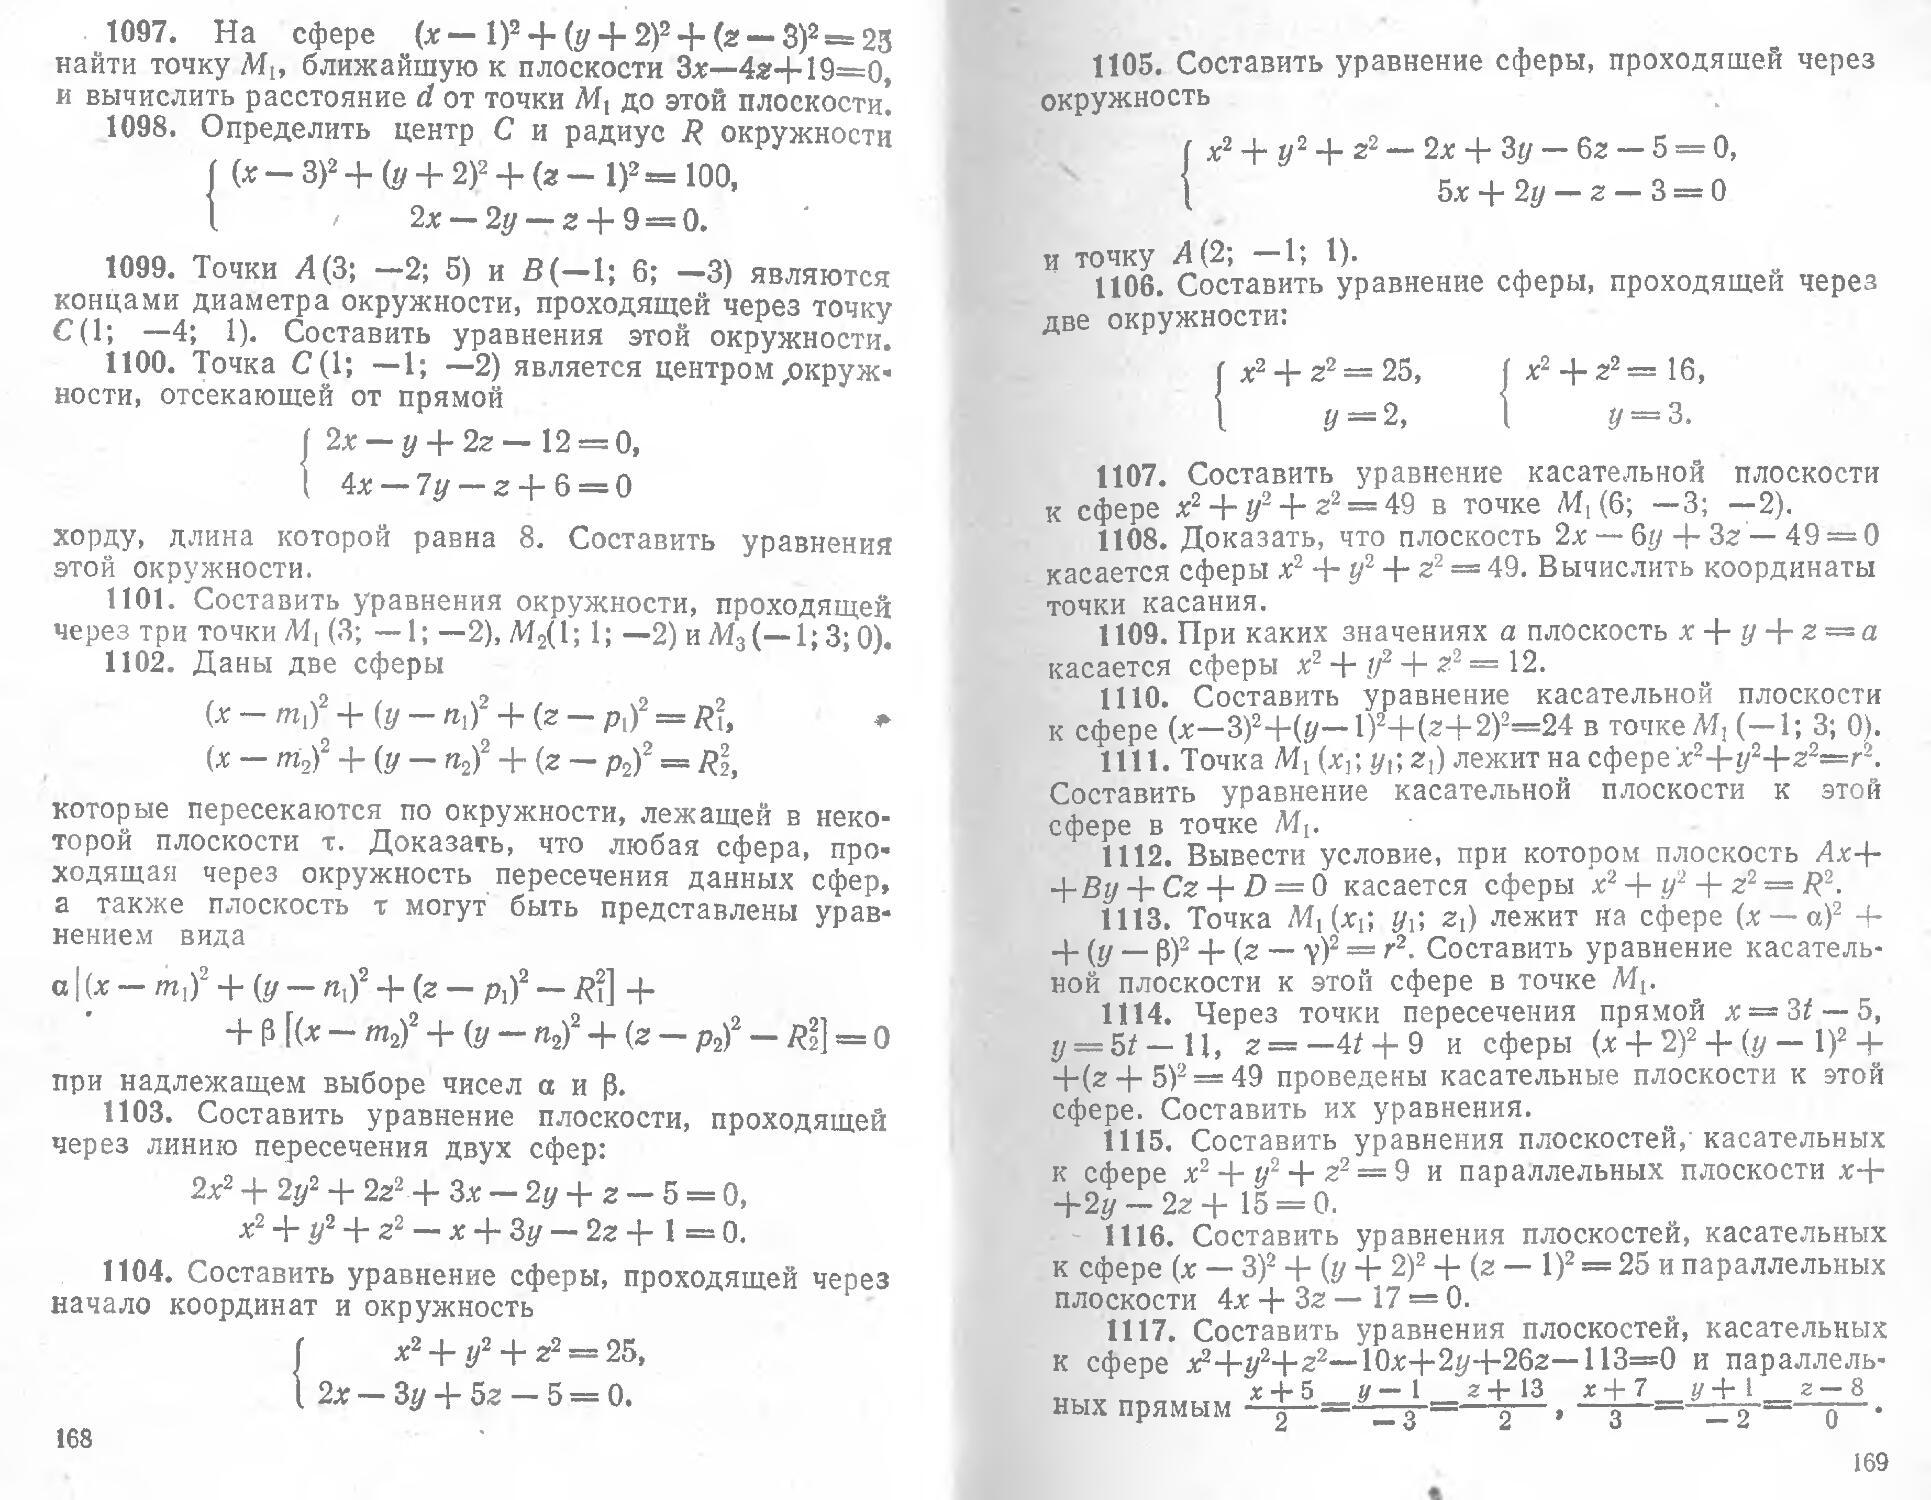 1097. На сфере (x — 1)² + (y + 2)² + (z — 3)² = 25
найти точку M₁, ближайшую к плоскости 3x—4z+19=0,
и вычислить расстояние d от точки M₁ до этой плоскости.
1098. Определить центр C и радиус R окружности
(x — 3)² + (y + 2)² + (z — 1)² = 100,
2x — 2y — z + 9 = 0.
1099. Точки A(3; —2; 5) и B(—1; 6; —3) являются
концами диаметра окружности, проходящей через точку
C(1; —4; 1). Составить уравнения этой окружности.
1100. Точка C(1; —1; —2) является центром окруж-
ности, отсекающей от прямой
2x — y + 2z — 12 = 0,
4x — 7y — z + 6 = 0
хорду, длина которой равна 8. Составить уравнения
этой окружности.
1101. Составить уравнения окружности, проходящей
через три точки M₁ (3; —1; —2), M₂(1; 1; —2) и M₃(—1; 3; 0).
1102. Даны две сферы
(x — m₁)² + (y — n₁)² + (z — p₁)² = R₁²,
(x — m₂)² + (y — n₂)² + (z — p₂)² = R₂²,
которые пересекаются по окружности, лежащей в неко-
торой плоскости τ. Доказать, что любая сфера, про-
ходящая через окружность пересечения данных сфер,
а также плоскость τ могут быть представлены урав-
нением вида
α[(x — m₁)² + (y — n₁)² + (z — p₁)² — R₁²] +
+ β [(x — m₂)² + (y — n₂)² + (z — p₂)² — R₂²] = 0
при надлежащем выборе чисел α и β.
1103. Составить уравнение плоскости, проходящей
через линию пересечения двух сфер:
2x² + 2y² + 2z² + 3x — 2y + z — 5 = 0,
x² + y² + z² — x + 3y — 2z + 1 = 0.
1104. Составить уравнение сферы, проходящей через
начало координат и окружность
x² + y² + z² = 25,
2x — 3y + 5z — 5 = 0.
168
1105. Составить уравнение сферы, проходящей через
окружность
x² + y² + z² — 2x + 3y — 6z — 5 = 0,
5x + 2y — z — 3 = 0
и точку A(2; —1; 1).
1106. Составить уравнение сферы, проходящей через
две окружности:
x² + z² = 25, x² + z² = 16,
y = 2, y = 3.
1107. Составить уравнение касательной плоскости
к сфере x² + y² + z² = 49 в точке M₁(6; —3; —2).
1108. Доказать, что плоскость 2x — 6y + 3z — 49 = 0
касается сферы x² + y² + z² = 49. Вычислить координаты
точки касания.
1109. При каких значениях a плоскость x + y + z = a
касается сферы x² + y² + z² = 12.
1110. Составить уравнение касательной плоскости
к сфере (x—3)²+(y—1)²+(z+2)²=24 в точке M₁(—1; 3; 0).
1111. Точка M₁ (x₁; y₁; z₁) лежит на сфере x²+y²+z²=r².
Составить уравнение касательной плоскости к этой
сфере в точке M₁.
1112. Вывести условие, при котором плоскость Ax+
+ By + Cz + D = 0 касается сферы x² + y² + z² = R².
1113. Точка M₁(x₁; y₁; z₁) лежит на сфере (x — α)² +
+ (y — β)² + (z — γ)² = r². Составить уравнение касатель-
ной плоскости к этой сфере в точке M₁.
1114. Через точки пересечения прямой x = 3t — 5,
y = 5t — 11, z = —4t + 9 и сферы (x + 2)² + (y — 1)² +
+(z + 5)² = 49 проведены касательные плоскости к этой
сфере. Составить их уравнения.
1115. Составить уравнения плоскостей, касательных
к сфере x² + y² + z² = 9 и параллельных плоскости x+
+2y — 2z + 15 = 0.
1116. Составить уравнения плоскостей, касательных
к сфере (x — 3)² + (y + 2)² + (z — 1)² = 25 и параллельных
плоскости 4x + 3z — 17 = 0.
1117. Составить уравнения плоскостей, касательных
к сфере x²+y²+z²—10x+2y+26z—113=0 и параллель-
ных прямым (x + 5)/2 = (y — 1)/—3 = (z + 13)/2, (x + 7)/3 = (y + 1)/—2 = (z — 8)/0.
169